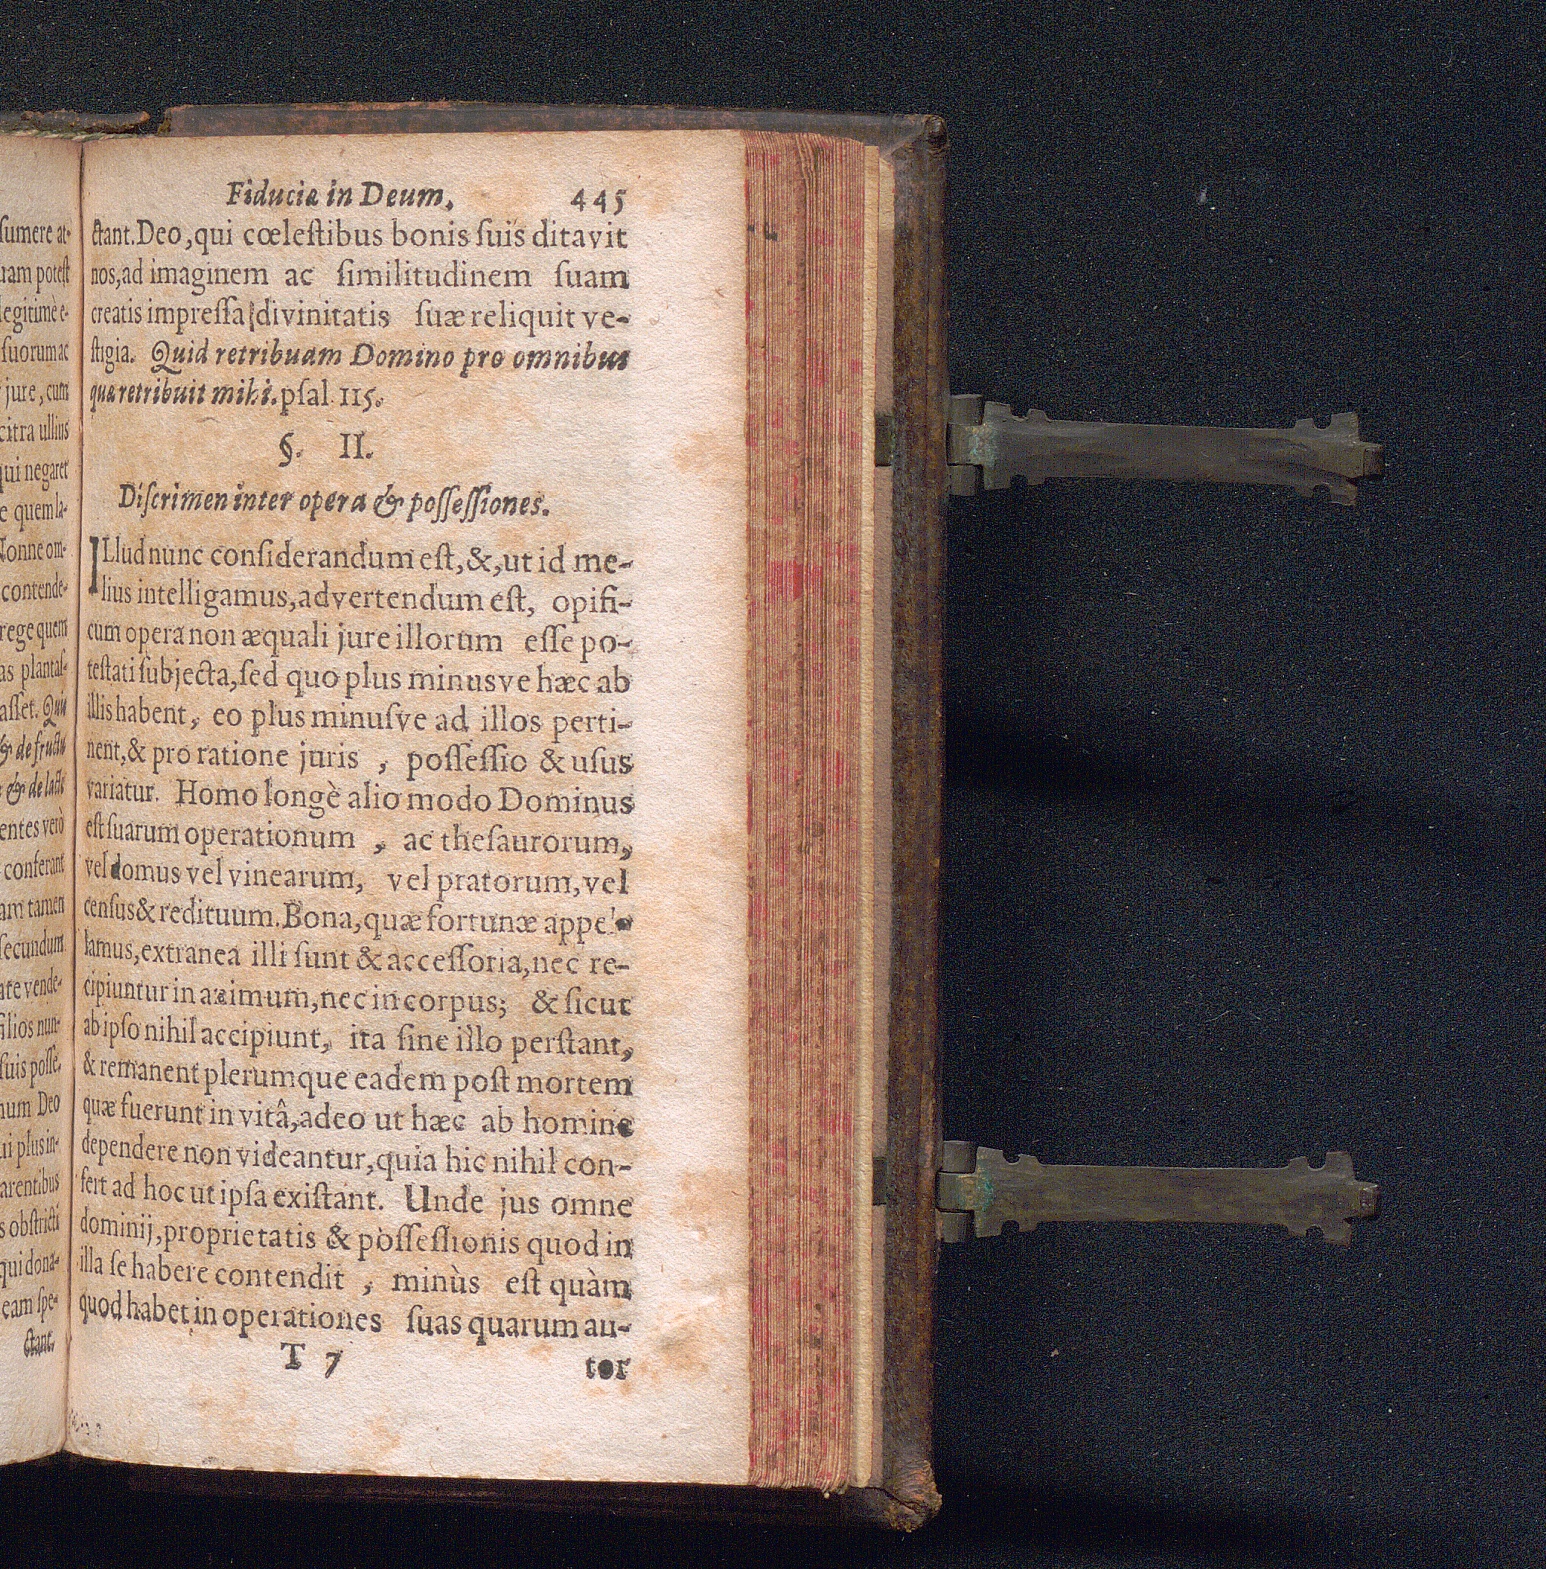 Fiducia in Deum. 445
ctant. Deo, qui cœlestibus bonis suis ditavit
nos, ad imaginem ac similitudinem suam
creatis impressa divinitatis suæ reliquit ve-
stigia. Quid retribuam Domino pro omnibus
quæ retribuit mihi. psal. 115.
§. II.
Discrimen inter opera & possessiones.
ILlud nunc considerandum est, &, ut id me-
lius intelligamus, advertendum est, opifi-
cum opera non æquali jure illorum esse po-
testati subjecta, sed quo plus minusve hæc ab
illis habent, eo plus minusve ad illos perti-
nent, & pro ratione juris, possessio & usus
variatur. Homo longè alio modo Dominus
est suarum operationum, ac thesaurorum,
vel domus vel vinearum, vel pratorum, vel
census & redituum. Bona, quæ fortunæ appel-
lamus, extranea illi sunt & accessoria, nec re-
cipiuntur in animum, nec in corpus; & sicut
ab ipso nihil accipiunt, ita sine illo perstant,
& remanent plerumque eadem post mortem
quæ fuerunt in vitâ, adeo ut hæc ab homine
dependere non videantur, quia hic nihil con-
fert ad hoc ut ipsa existant. Unde jus omne
dominij, proprietatis & possessionis quod in
illa se habere contendit, minùs est quàm
quod habet in operationes suas quarum au-
T 7 tor
sumere at-
uam potest
legitimè e-
suorum ac
jure, cum
citra ullius
qui negaret
e quem la-
Nonne om-
contende-
rege quem
as plantas-
asset. Quis
& de fructu
& de lacte
entes verò
conferant
am tamen
secundum
ate vende-
filios nun-
suis posse,
num Deo
ui plus in-
arentibus
s obstricti
qui dona-
eam spe-
ctant.